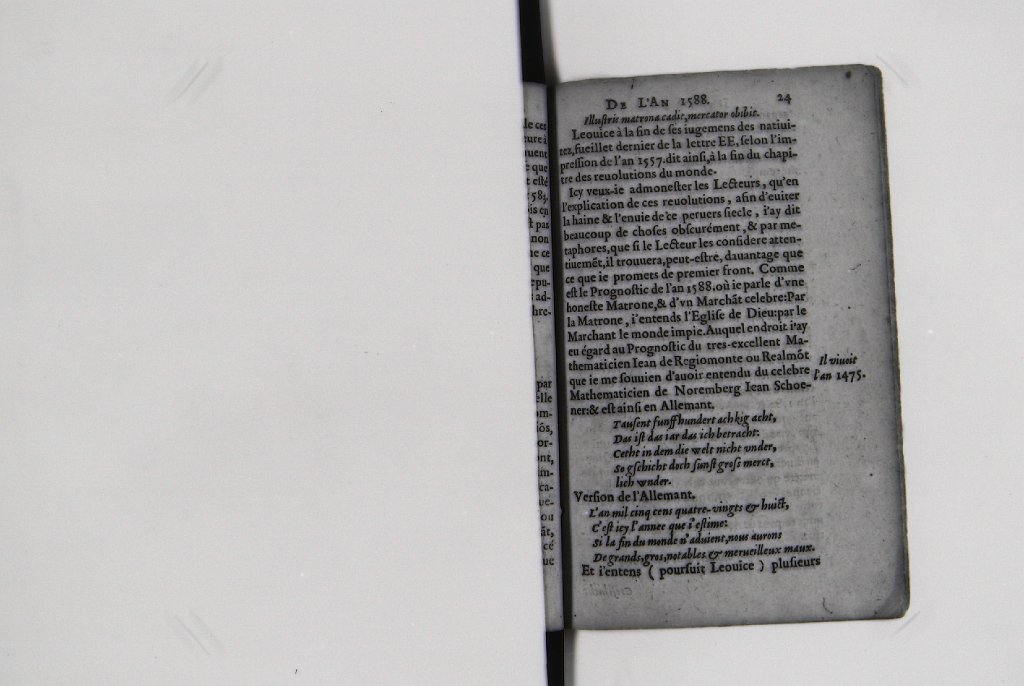 DE L'AN 1588. 24
Illustris matrona cadit, mercator obibit.
Leouice à la fin de ses iugemens des natiui-
tez, fueillet dernier de la lettre EE, selon l'im-
pression de l'an 1557. dit ainsi, à la fin du chapi-
tre des reuolutions du monde.
Icy veux-ie admonester les Lecteurs, qu'en
l'explication de ces reuolutions, afin d'euiter
la haine & l'enuie de ce peruers siecle, i'ay dit
beaucoup de choses obscurément, & par me-
taphores, que si le Lecteur les considere atten-
tiuemẽt, il trouuera, peut-estre, dauantage que
ce que ie promets de premier front. Comme
est le Prognostic de l'an 1588. où ie parle d'vne
honeste Matrone, & d'vn Marchãt celebre: Par
la Matrone, i'entends l'Eglise de Dieu: par le
Marchant le monde impie. Auquel endroit i'ay
eu égard au Prognostic du tres-excellent Ma-
thematicien Iean de Regiomonte ou Realmõt
que ie me souuien d'auoir entendu du celebre
Mathematicien de Noremberg Iean Schoe-
ner: & est ainsi en Allemant.
Il viuoit
l'an 1475.
Tausent funffhundert achkig acht,
Das ist das iar das ich betracht:
Cetht in dem die welt nicht vnder,
So gschicht doch sunst gross merct,
lich wnder.
Version de l'Allemant.
L'an mil cinq cens quatre-vingts & huict,
C'est icy l'annee que i'estime:
Si la fin du monde n'aduient, nous aurons
De grands, gros, notables & merueilleux maux.
Et i'entens ( poursuit Leouice ) plusieurs